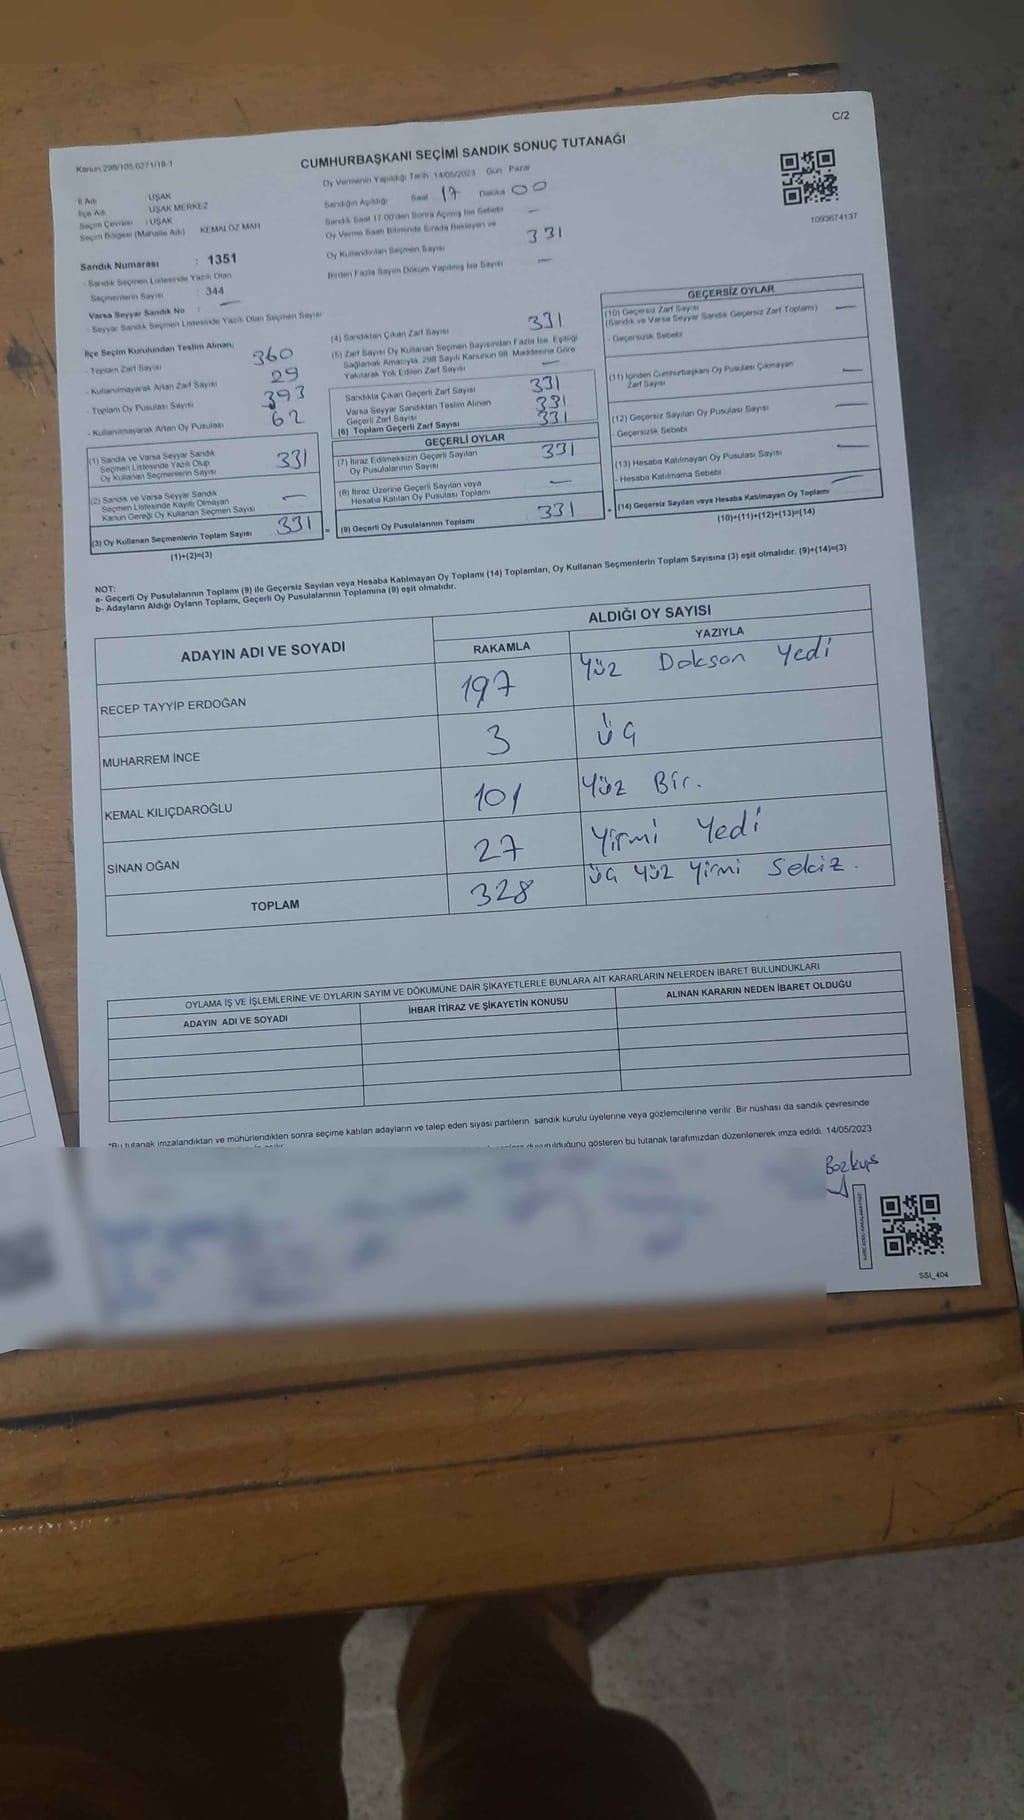 C/2
Kanun 298/105,6271/18-1
CUMHURBAŞKANI SEÇİMİ SANDIK SONUÇ TUTANAĞI
İl Adı : UŞAK
İlçe Adı : UŞAK MERKEZ
Seçim Çevresi : UŞAK
Seçim Bölgesi (Mahalle Adı) KEMALÖZ MAH
Oy Vermenin Yapıldığı Tarih 14/05/2023 Gün Pazar
Sandığın Açıldığı Saat 17 Dakika 00
Sandık Saat 17.00'den Sonra Açmış İse Sebebi –
Oy Verme Saati Bitiminde Sırada Bekleyen ve
Oy Kullandırılan Seçmen Sayısı 331
Birden Fazla Sayım Döküm Yapılmış İse Sayısı –
1093674137
Sandık Numarası : 1351
- Sandık Seçmen Listesinde Yazılı Olan
Seçmenlerin Sayısı : 344
Varsa Seyyar Sandık No : –
- Seyyar Sandık Seçmen Listesinde Yazılı Olan Seçmen Sayısı
İlçe Seçim Kurulundan Teslim Alınan;
- Toplam Zarf Sayısı 360
- Kullanılmayarak Artan Zarf Sayısı 29
- Toplam Oy Pusulası Sayısı 393
- Kullanılmayarak Artan Oy Pusulası 62
(1) Sandık ve Varsa Seyyar Sandık
Seçmen Listesinde Yazılı Olup
Oy Kullanan Seçmenlerin Sayısı 331
(2) Sandık ve Varsa Seyyar Sandık
Seçmen Listesinde Kayıtlı Olmayan
Kanun Gereği Oy Kullanan Seçmen Sayısı –
(3) Oy Kullanan Seçmenlerin Toplam Sayısı 331 =
(1)+(2)=(3)
(4) Sandıktan Çıkan Zarf Sayısı 331
(5) Zarf Sayısı Oy Kullanan Seçmen Sayısından Fazla İse, Eşitliği
Sağlamak Amacıyla, 298 Sayılı Kanunun 98. Maddesine Göre
Yakılarak Yok Edilen Zarf Sayısı –
Sandıkta Çıkan Geçerli Zarf Sayısı 331
Varsa Seyyar Sandıktan Teslim Alınan
Geçerli Zarf Sayısı 331
(6) Toplam Geçerli Zarf Sayısı 331
GEÇERLİ OYLAR
(7) İtiraz Edilmeksizin Geçerli Sayılan
Oy Pusulalarının Sayısı 331
(8) İtiraz Üzerine Geçerli Sayılan veya
Hesaba Katılan Oy Pusulası Toplamı –
(9) Geçerli Oy Pusulalarının Toplamı 331 +
GEÇERSİZ OYLAR
(10) Geçersiz Zarf Sayısı
(Sandık ve Varsa Seyyar Sandık Geçersiz Zarf Toplamı) –
- Geçersizlik Sebebi
(11) İçinden Cumhurbaşkanı Oy Pusulası Çıkmayan
Zarf Sayısı –
(12) Geçersiz Sayılan Oy Pusulası Sayısı –
- Geçersizlik Sebebi
(13) Hesaba Katılmayan Oy Pusulası Sayısı –
- Hesaba Katılmama Sebebi
(14) Geçersiz Sayılan veya Hesaba Katılmayan Oy Toplamı –
(10)+(11)+(12)+(13)=(14)
NOT:
a- Geçerli Oy Pusulalarının Toplamı (9) ile Geçersiz Sayılan veya Hesaba Katılmayan Oy Toplamı (14) Toplamları, Oy Kullanan Seçmenlerin Toplam Sayısına (3) eşit olmalıdır. (9)+(14)=(3)
b- Adayların Aldığı Oyların Toplamı, Geçerli Oy Pusulalarının Toplamına (9) eşit olmalıdır.
ADAYIN ADI VE SOYADI
ALDIĞI OY SAYISI
RAKAMLA YAZIYLA
RECEP TAYYİP ERDOĞAN 197 Yüz Dokson Yedi
MUHARREM İNCE 3 üç
KEMAL KILIÇDAROĞLU 101 Yüz Bir.
SİNAN OĞAN 27 Yirmi Yedi
TOPLAM 328 üç yüz Yirmi Sekiz.
OYLAMA İŞ VE İŞLEMLERİNE VE OYLARIN SAYIM VE DÖKÜMÜNE DAİR ŞİKAYETLERLE BUNLARA AİT KARARLARIN NELERDEN İBARET BULUNDUKLARI
ADAYIN ADI VE SOYADI İHBAR İTİRAZ VE ŞİKAYETİN KONUSU ALINAN KARARIN NEDEN İBARET OLDUĞU
*Bu tutanak imzalandıktan ve mühürlendikten sonra seçime katılan adayların ve talep eden siyasi partilerin sandık kurulu üyelerine veya gözlemcilerine verilir. Bir nüshası da sandık çevresinde
duyurulduğunu gösteren bu tutanak tarafımızdan düzenlenerek imza edildi. 14/05/2023
Bozkuş
SSİ_404